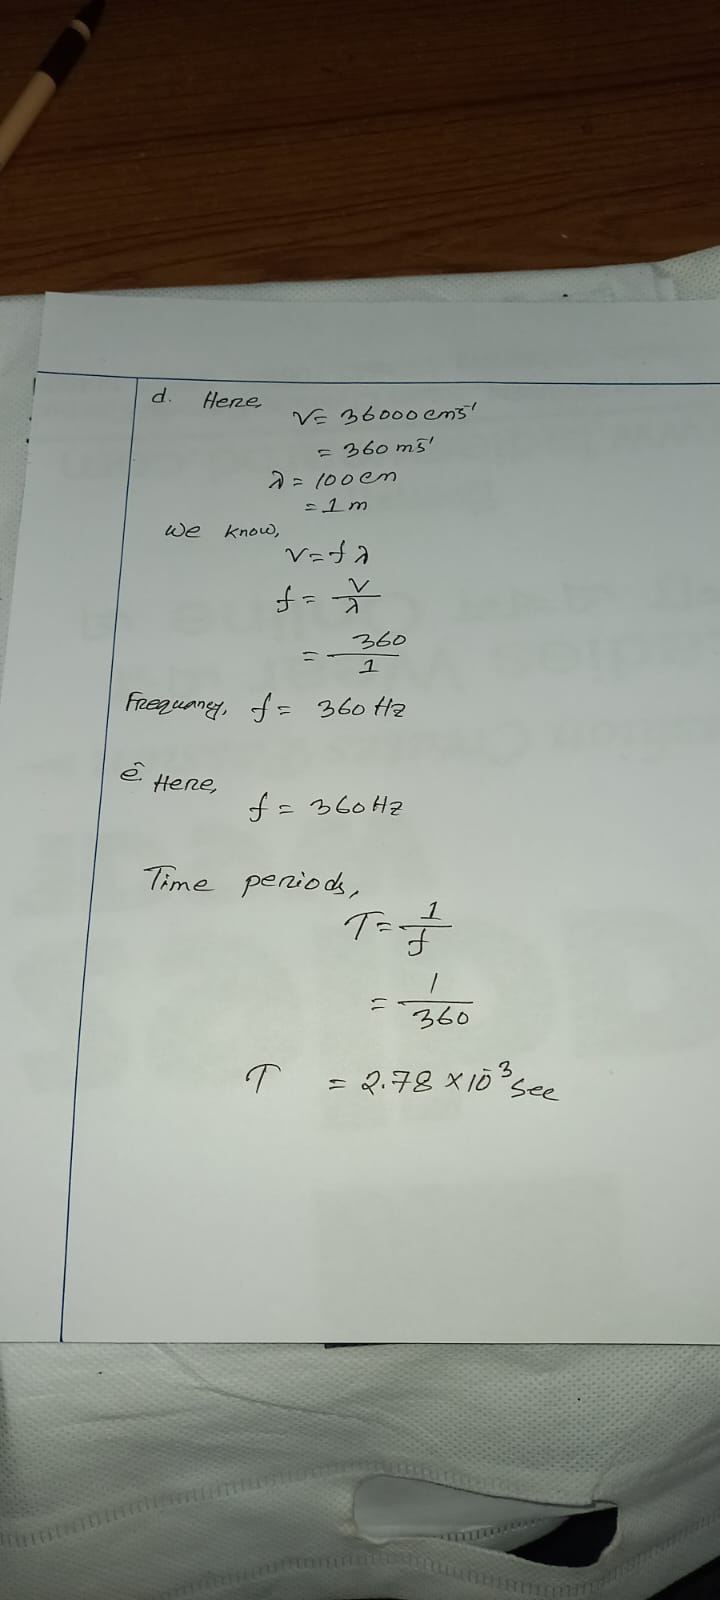 d. Here,
v = 36000 cms⁻¹
= 360 ms⁻¹
λ = 100 cm
= 1 m
We know,
v = fλ
f = v/λ
= 360/1
Frequancy, f = 360 Hz
e. Here,
f = 360 Hz
Time periods,
T = 1/f
= 1/360
T = 2.78 × 10⁻³ sec